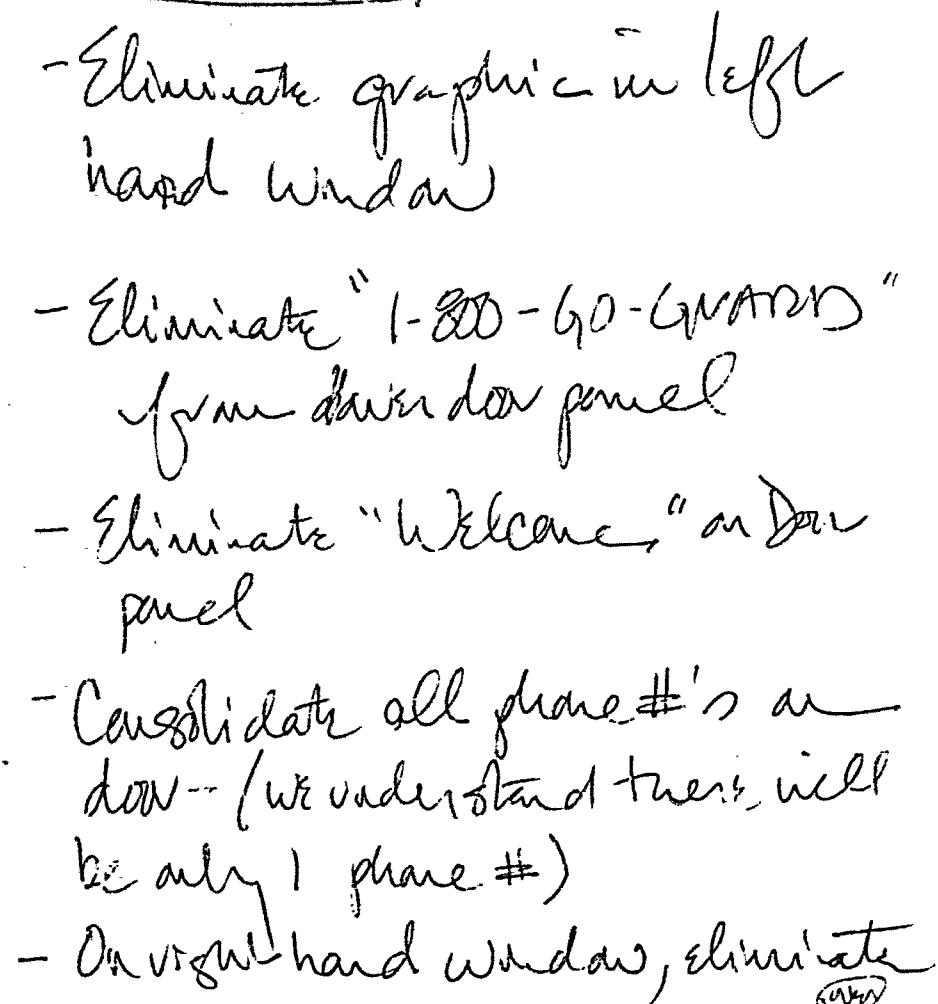 - Eliminate graphic in left
hand window
- Eliminate "1-800-GO-GUARD"
from lower door panel
- Eliminate "Welcome," on Door
panel
- Consolidate all phone #'s on
door -- (we understand there will
be only 1 phone #)
- On right hand window, eliminate